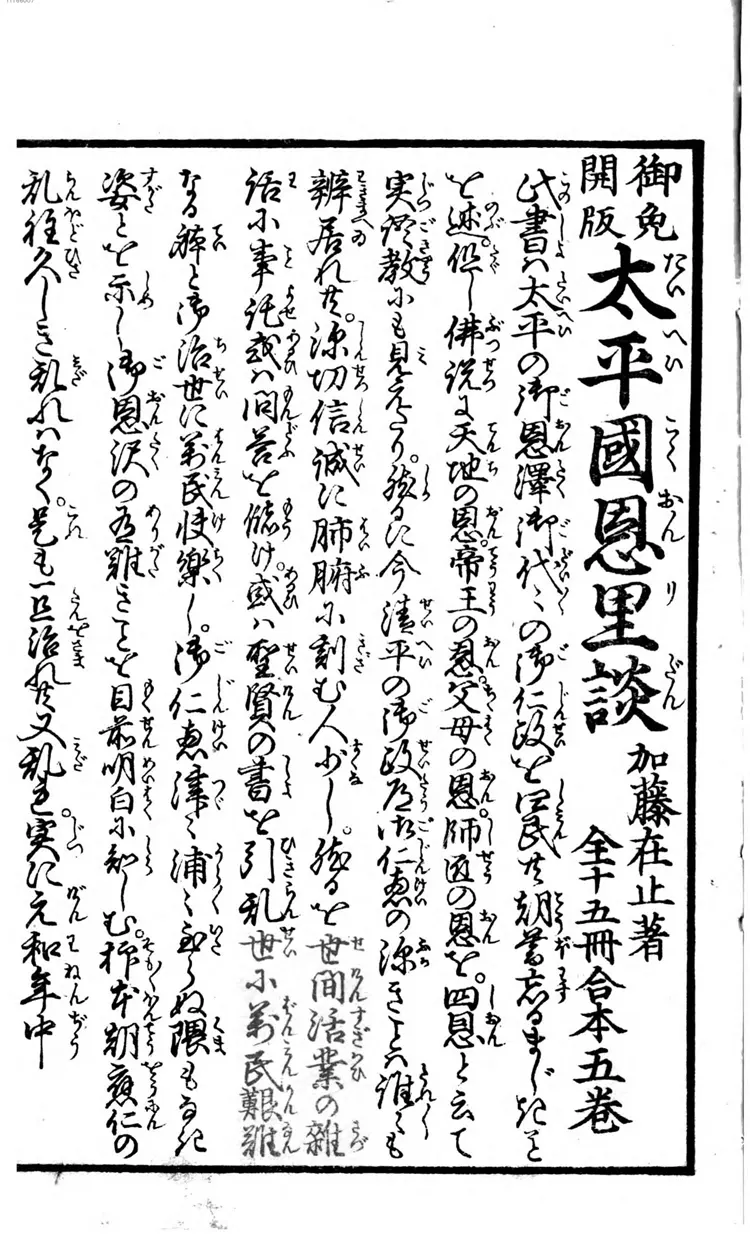 御免
開版
太平國恩里談
加藤在止著
全十五冊合本五巻
此書ハ太平の御恩澤御代〻の御仁政を四民共朝暮忘るまじきこと
を述但し佛説に天地の恩。帝王の恩。父母の恩。師匠の恩を。四恩と云て
実教にも見えたり。然るに今清平の御政道御仁恵の深きことハ誰〻も
辨居れ共。深切信誠に肺腑に刻む人少し。然るを世間活業の雑
話に事託或ハ問答を儲け。或ハ聖賢の書を引乱世に萬民艱難
なる躰と御治世に萬民快樂し。御仁恵津〻浦〻至らぬ隈もなき
姿とを示し御恩沢の有難きことを目前明白に知しむ。抑本朝應仁の
乱程久しき乱れハなく。是も一旦治れ共又乱已。実に元和年中